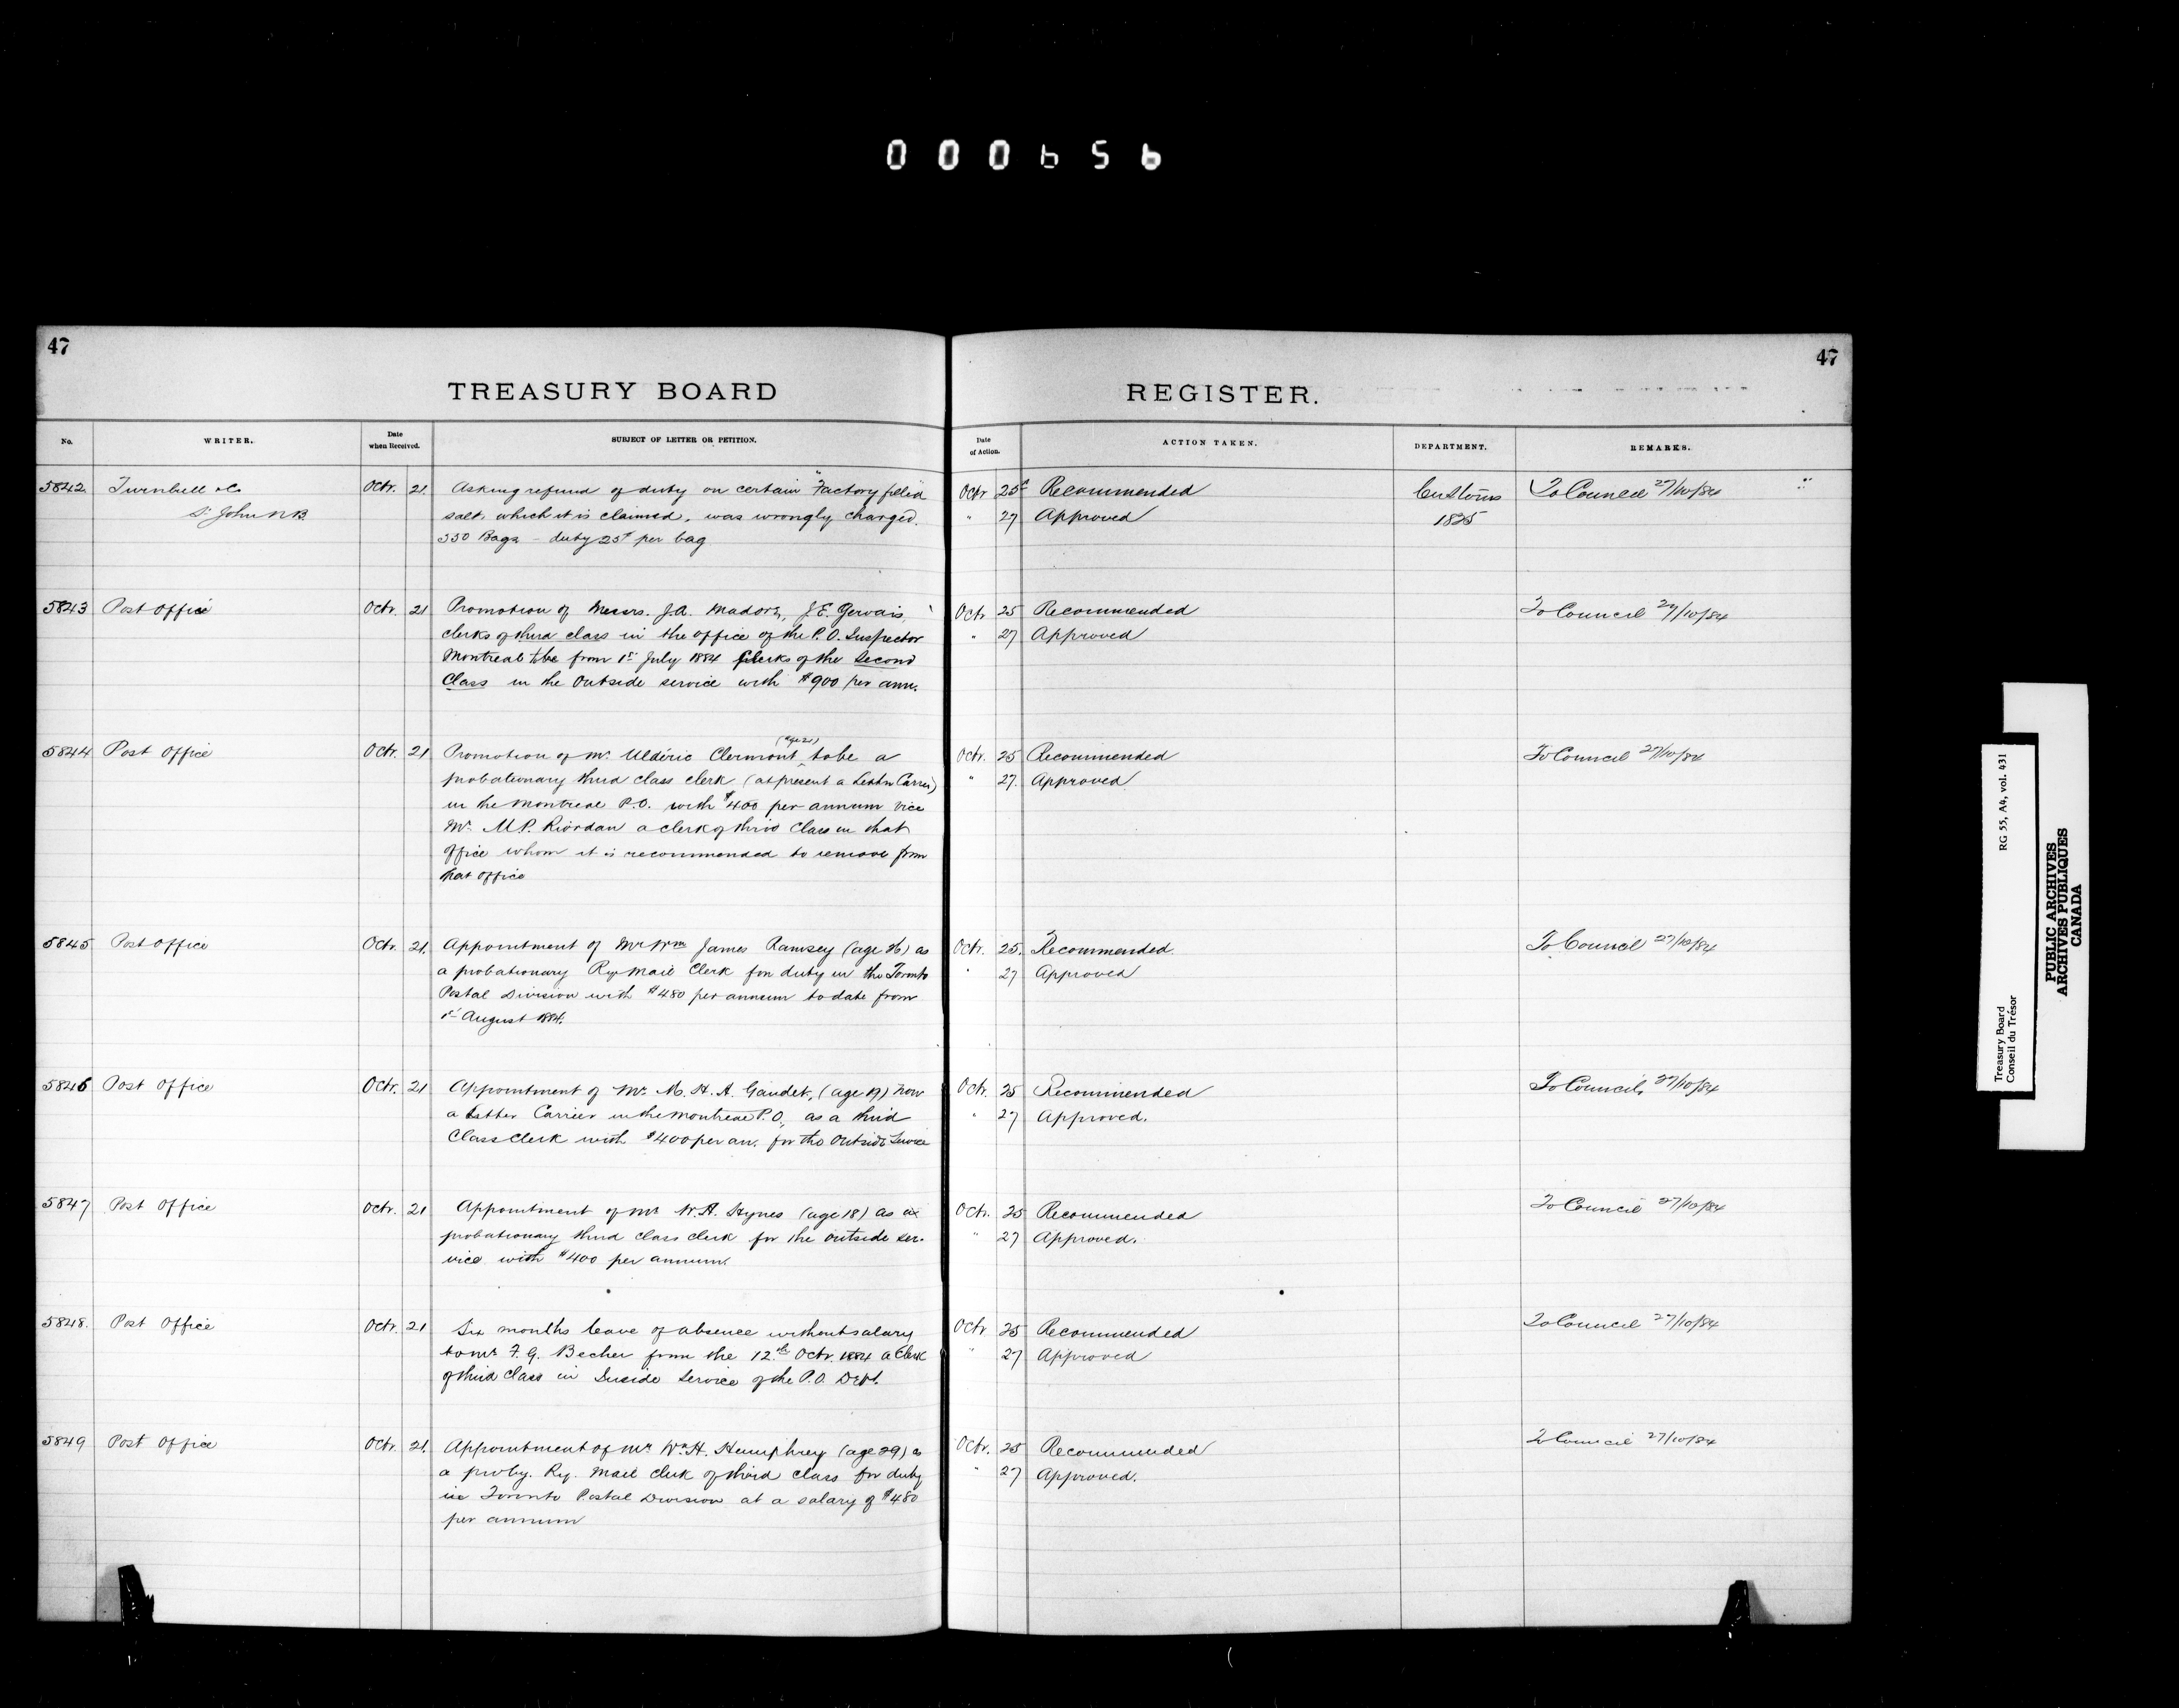 000656
47
47
TREASURY BOARD
REGISTER.
No.
WRITER.
Date
when Received.
SUBJECT OF LETTER OR PETITION.
Date
of Action.
ACTION TAKEN.
DEPARTMENT.
REMARKS.
5842. Turnbull & Co Octr. 21. Asking refund of duty on certain "Factory filled Octr 25 Recommended Customs To Council 27/10/84
St John N.B. salt, which it is claimed, was wrongly charged. " 27 Approved 1825
350 Bags - duty 25 per bag
5843 Post Office Octr. 21 Promotion of Messrs. J.A. J.E. Gervais, Octr 25 Recommended To Council 27/10/84
clerks of third class in the office of the P.O. Inspector " 27 Approved
Montreal to be from 1st July 1884 Clerks of the Second
Class in the Outside service with $900 per ann.
5844 Post Office Octr. 21 Promotion of Mr Uldéric Clermont (age 21) to be a Octr. 25 Recommended To Council 27/10/84
probationary third class clerk (at present a Letter Carrier) " 27. Approved
in the Montreal P.O. with $400 per annum vice
Mr. M.P. Riordan a clerk of third Class in that
Office whom it is recommended to remove from
that office
5845 Post Office Octr. 21. Appointment of Mr Wm James Ramsey (age 26) as Octr. 25. Recommended. To Council 27/10/84
a probationary Ry Mail Clerk for duty in the Toronto " 27 Approved
Postal Division with $480 per annum to date from
1st August 1884.
5846 Post Office Octr. 21 Appointment of Mr. M.H.A. Gaudet, (age 19) now Octr. 25 Recommended To Council 27/10/84
a Letter Carrier in the Montreal P.O., as a third " 27 Approved.
Class Clerk with $400 per an. for the Outside Service
5847 Post Office Octr. 21 Appointment of Mr W.H. Hynes (age 18) as a Octr. 25 Recommended To Council 27/10/84
probationary third class clerk for the outside ser- " 27 Approved.
vice with $400 per annum.
5848. Post Office Octr. 21 Six months leave of absence without salary Octr 25 Recommended To Council 27/10/84
to Mr F.G. Becher from the 12th Octr. 1884 a Clerk " 27 Approved
of third class in Inside Service of the P.O. Dept.
5849 Post Office Octr. 21. Appointment of Mr Wm H. Humphrey (age 29) as Octr. 25 Recommended To Council 27/10/84
a proby. Ry. Mail clerk of third class for duty " 27 Approved.
in Toronto Postal Division at a salary of $480
per annum
Treasury Board RG 55, A4, vol. 431
Conseil du Trésor
PUBLIC ARCHIVES
ARCHIVES PUBLIQUES
CANADA